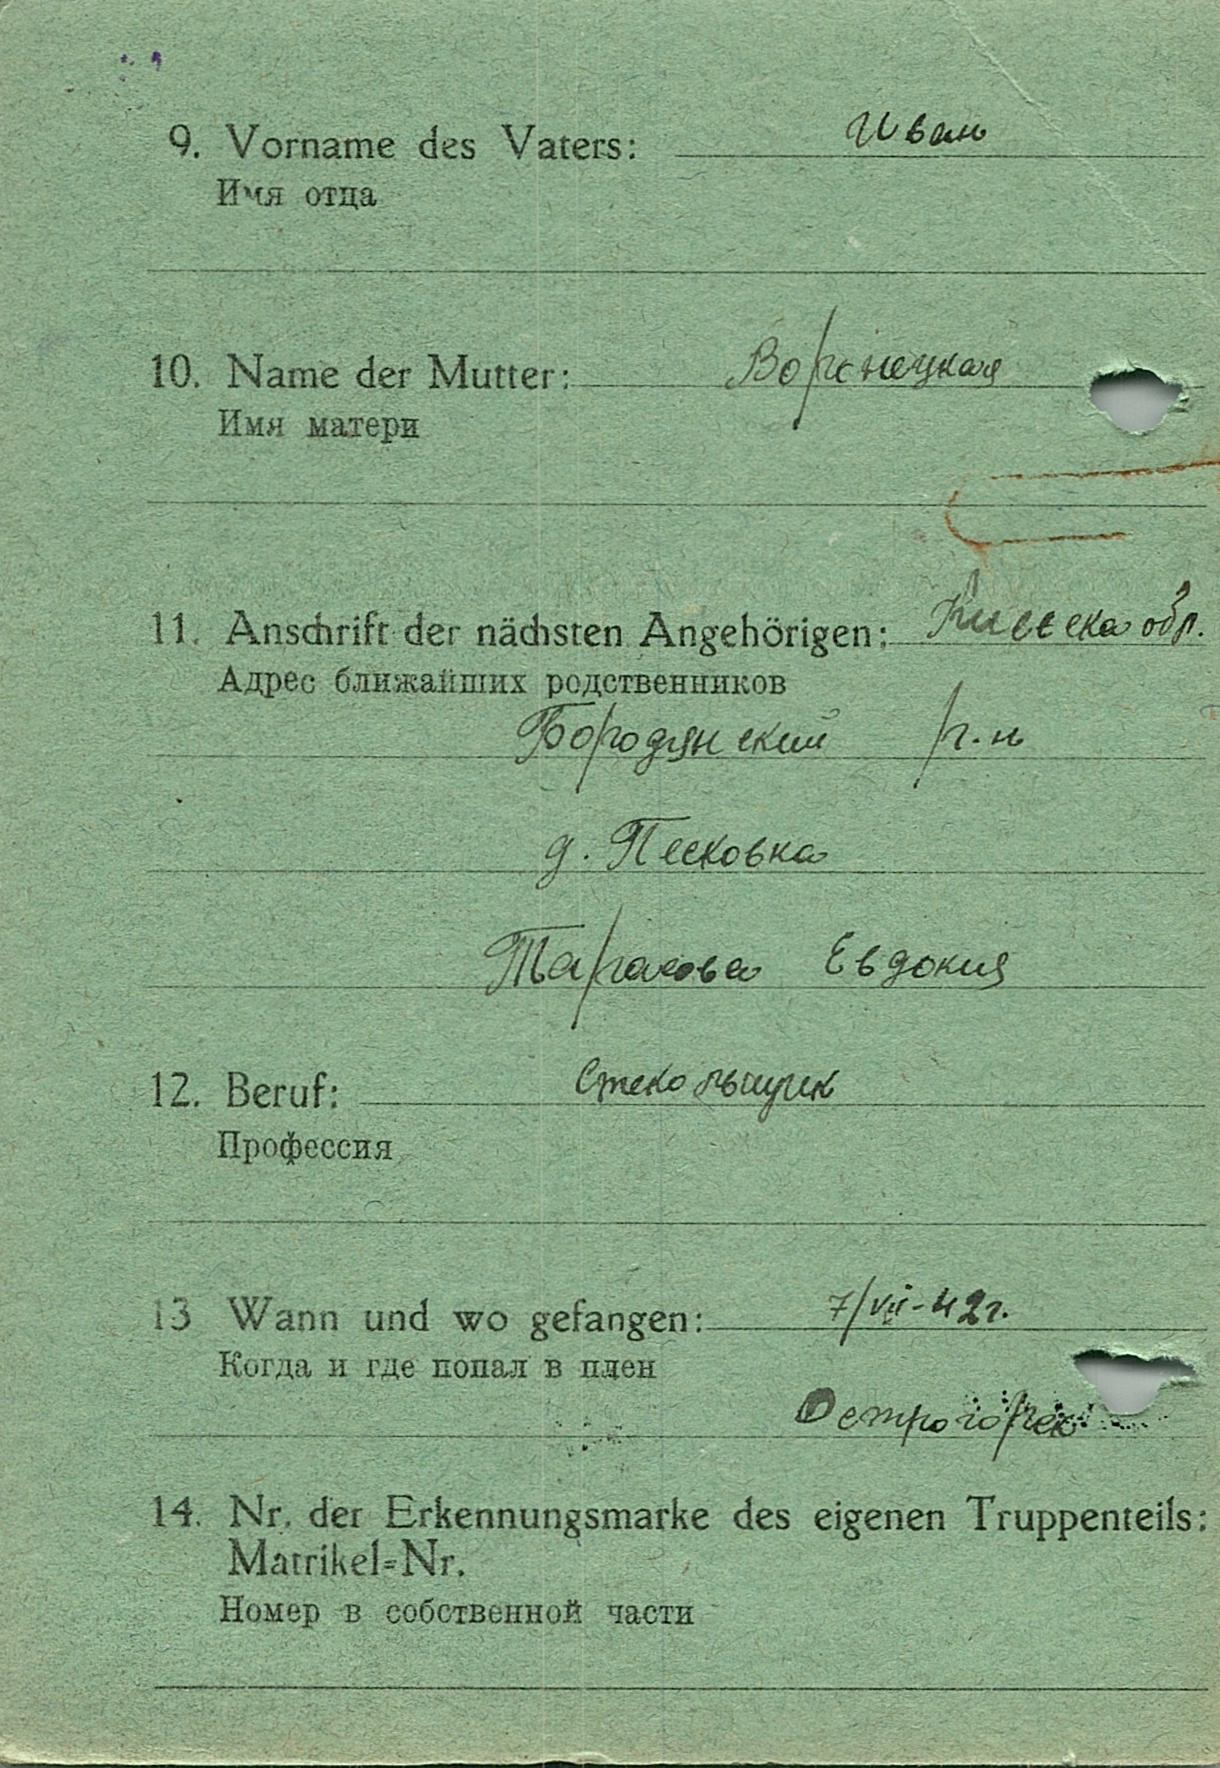 9. Vorname des Vaters: Иван
Имя отца
10. Name der Mutter: Воронецкая
Имя матери
11. Anschrift der nächsten Angehörigen: Киевска обл.
Адрес ближайших родственников
Бородянский р.н
д. Песковка
Тарасова Евдокия
12. Beruf: Стекольщик
Профессия
13 Wann und wo gefangen: 7/VII-42г.
Когда и где попал в плен
Острогорск
14. Nr. der Erkennungsmarke des eigenen Truppenteils:
Matrikel=Nr.
Номер в собственной части